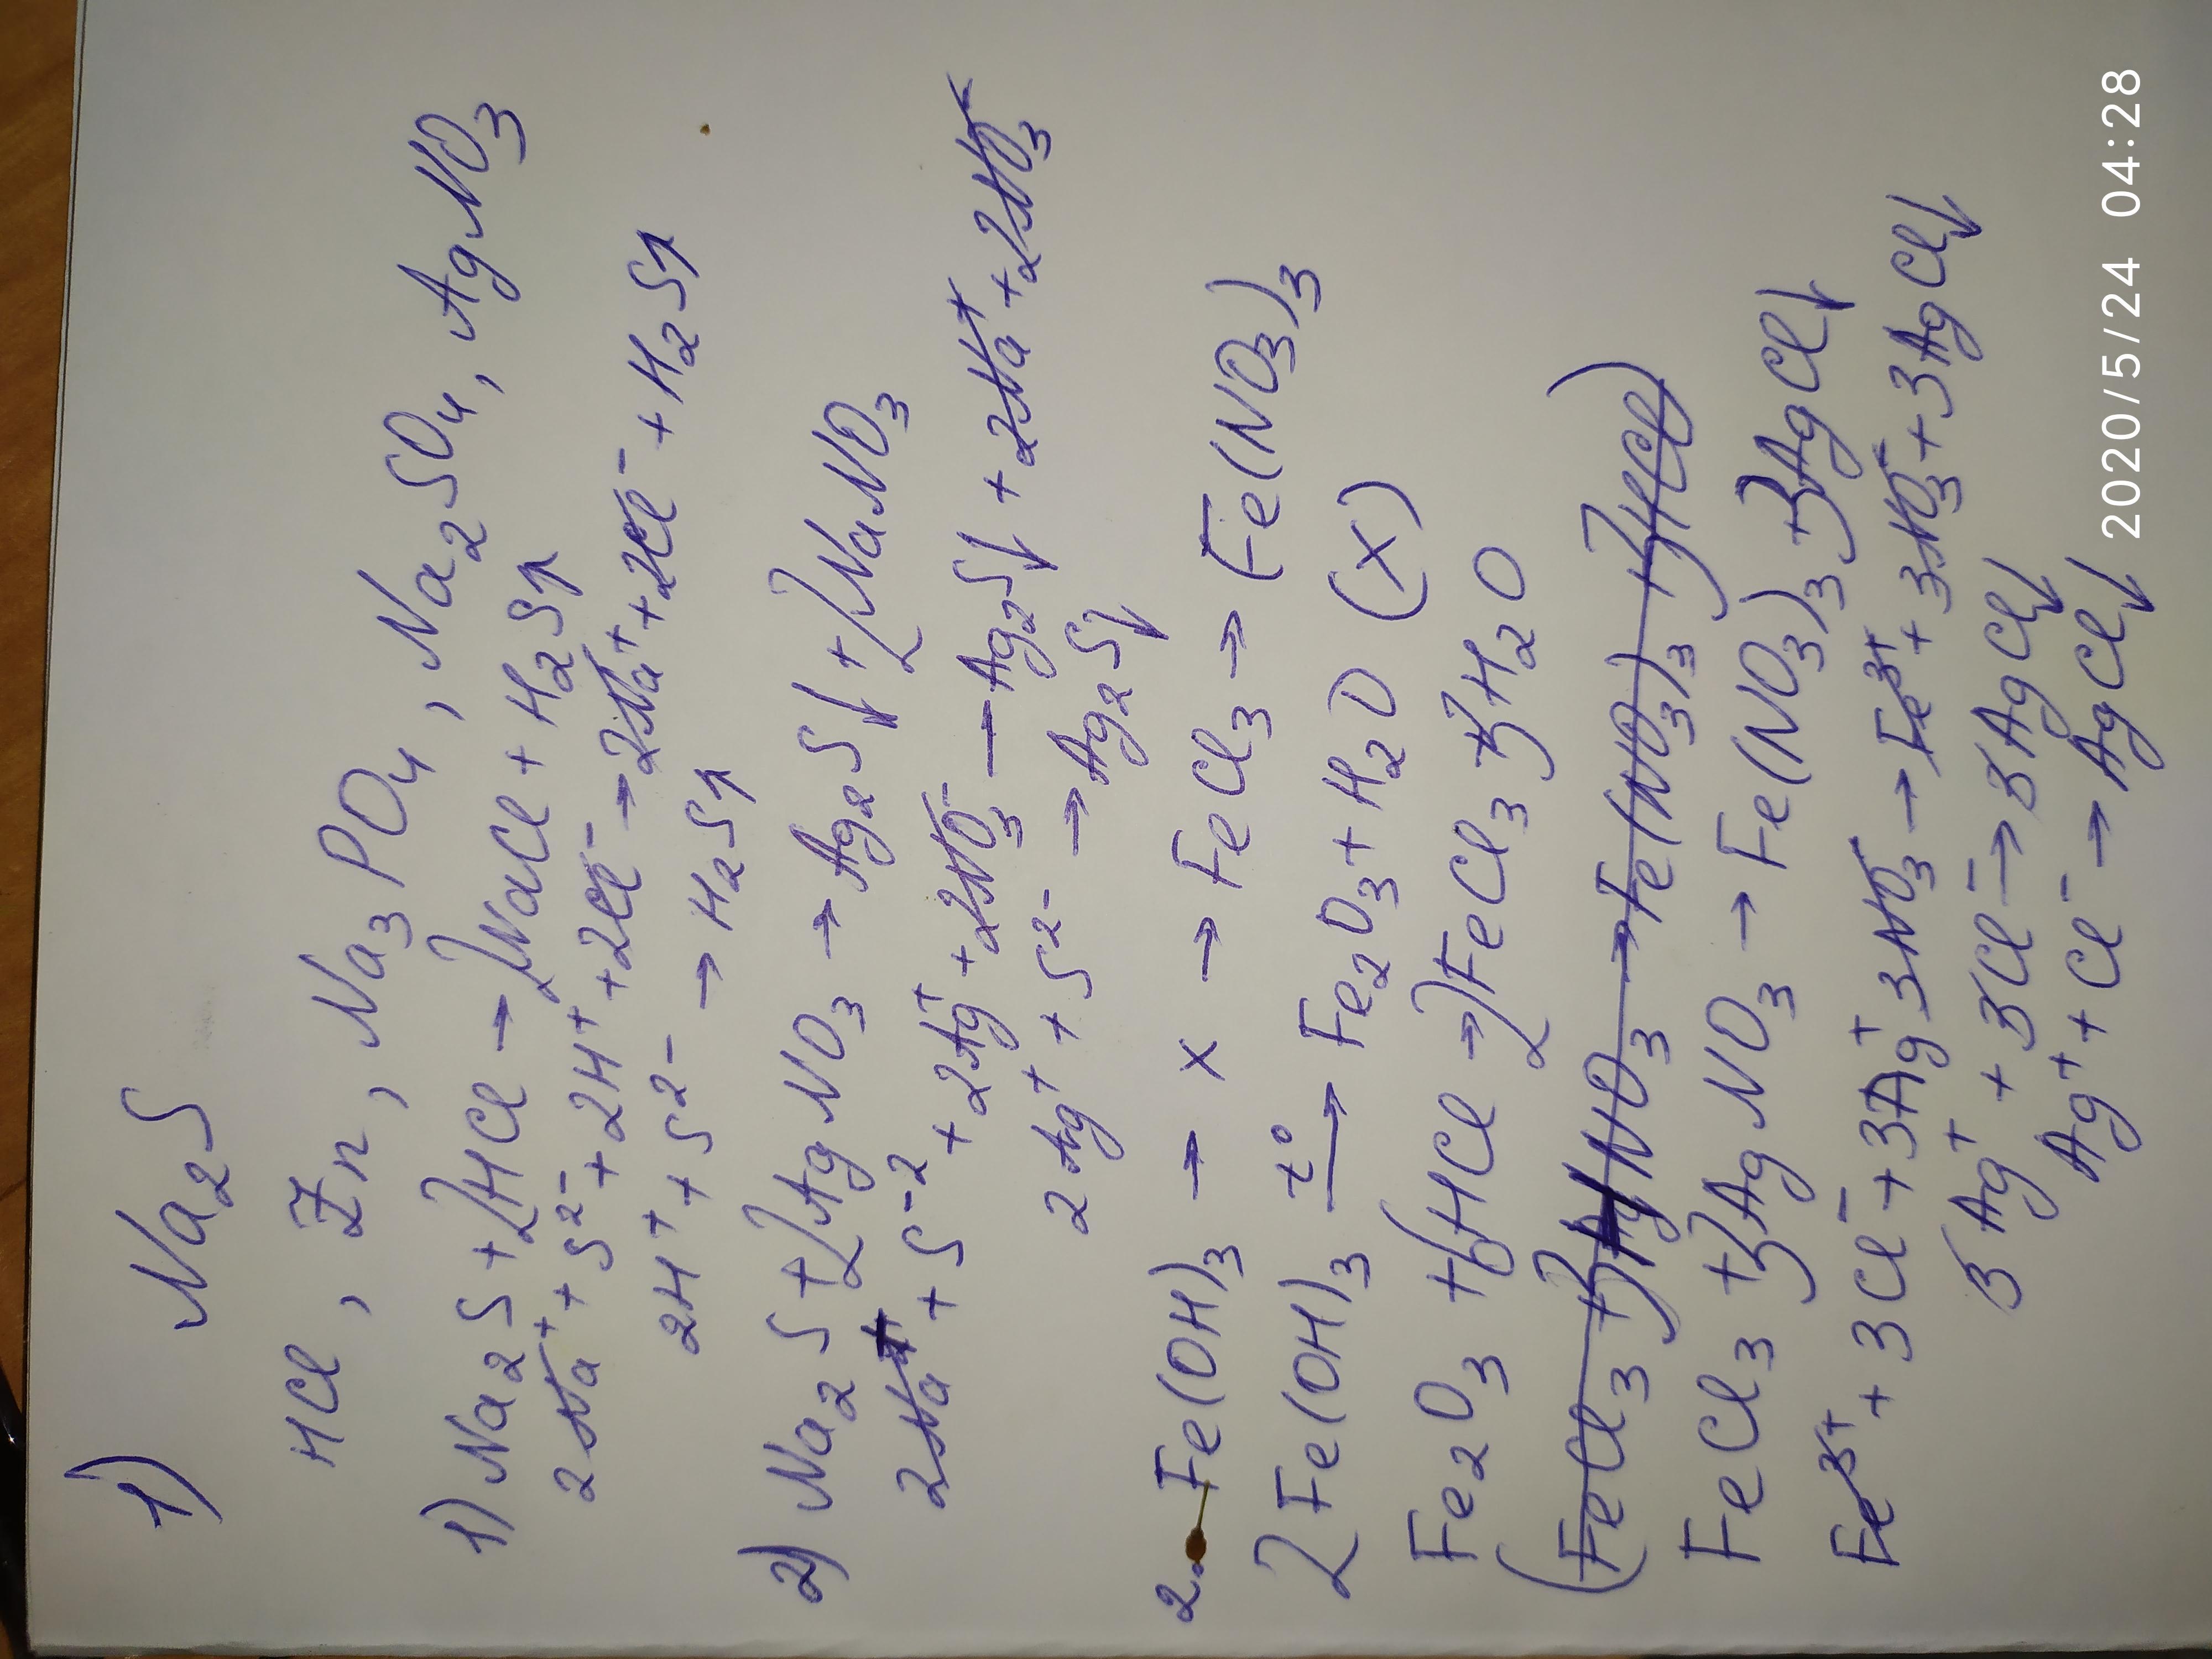 1) Na₂S
HCl, Zn, Na₃PO₄, Na₂SO₄, AgNO₃
1) Na₂S + 2HCl → 2NaCl + H₂S↑
2Na⁺ + S²⁻ + 2H⁺ + 2Cl⁻ → 2Na⁺ + 2Cl⁻ + H₂S↑
2H⁺ + S²⁻ → H₂S↑
2) Na₂S + 2AgNO₃ → Ag₂S↓ + 2NaNO₃
2Na⁺ + S⁻² + 2Ag⁺ + 2NO₃⁻ — Ag₂S↓ + 2Na⁺ + 2NO₃⁻
2Ag⁺ + S²⁻ → Ag₂S↓
2. Fe(OH)₃ → x → FeCl₃ → Fe(NO₃)₃
2Fe(OH)₃ t° → Fe₂O₃ + H₂O (x)
Fe₂O₃ + 6HCl → 2FeCl₃ + 3H₂O
(FeCl₃ + 3HNO₃ → Fe(NO₃)₃ + 3HCl)
FeCl₃ + 3AgNO₃ → Fe(NO₃)₃ + 3AgCl↓
Fe³⁺ + 3Cl⁻ + 3Ag⁺ 3NO₃⁻ → Fe³⁺ + 3NO₃⁻ + 3AgCl↓
3Ag⁺ + 3Cl⁻ → 3AgCl↓
Ag⁺ + Cl⁻ → AgCl↓
2020/5/24 04:28